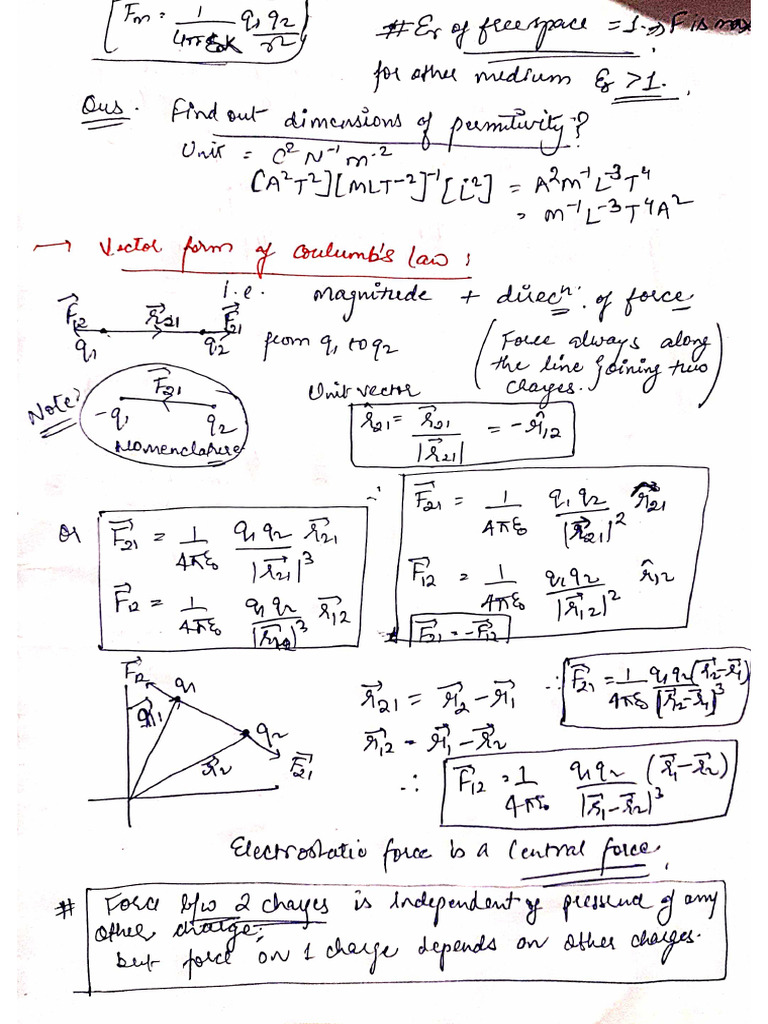 [Fm = 1/4πε₀K q₁q₂/r²]
# εr of free space = 1. ⇒ F is max
for other medium εr >1.
Ques. Find out dimensions of permitivity?
Unit = C² N⁻¹ m⁻²
[A²T²][MLT⁻²]⁻¹[L²] = A²M⁻¹L⁻³T⁴
= M⁻¹L⁻³T⁴A²
→ Vector form of Coulumb's law:
i.e. magnitude + direcⁿ. of force
F⃗₁₂ r⃗₂₁ F⃗₂₁
q₁ q₂ from q₁ to q₂
(Force always along
the line joining two
charges.)
Note:
F⃗₂₁
-q₁ q₂
Nomenclature
Unit vector
r̂₂₁ = r⃗₂₁/|r⃗₂₁| = -r̂₁₂
∴ F⃗₂₁ = 1/4πε₀ q₁q₂/|r⃗₂₁|² r̂₂₁
F⃗₁₂ = 1/4πε₀ q₁q₂/|r⃗₁₂|² r̂₁₂
* F⃗₂₁ = -F⃗₁₂
or F⃗₂₁ = 1/4πε₀ q₁q₂/|r⃗₂₁|³ r⃗₂₁
F⃗₁₂ = 1/4πε₀ q₁q₂/|r⃗₁₂|³ r⃗₁₂
F⃗₁₂ q₁
r⃗₁ q₂
r⃗₂ F⃗₂₁
r⃗₂₁ = r⃗₂-r⃗₁ ∴ F⃗₂₁ = 1/4πε₀ q₁q₂(r⃗₂-r⃗₁)/|r⃗₂-r⃗₁|³
r⃗₁₂ = r⃗₁-r⃗₂
∴ F⃗₁₂ = 1/4πε₀ q₁q₂/|r⃗₁-r⃗₂|³ (r⃗₁-r⃗₂)
Electrostatic force is a Central force.
# Force b/w 2 charges is independent of pressend of any
other charge;
but force on 1 charge depends on other charges.